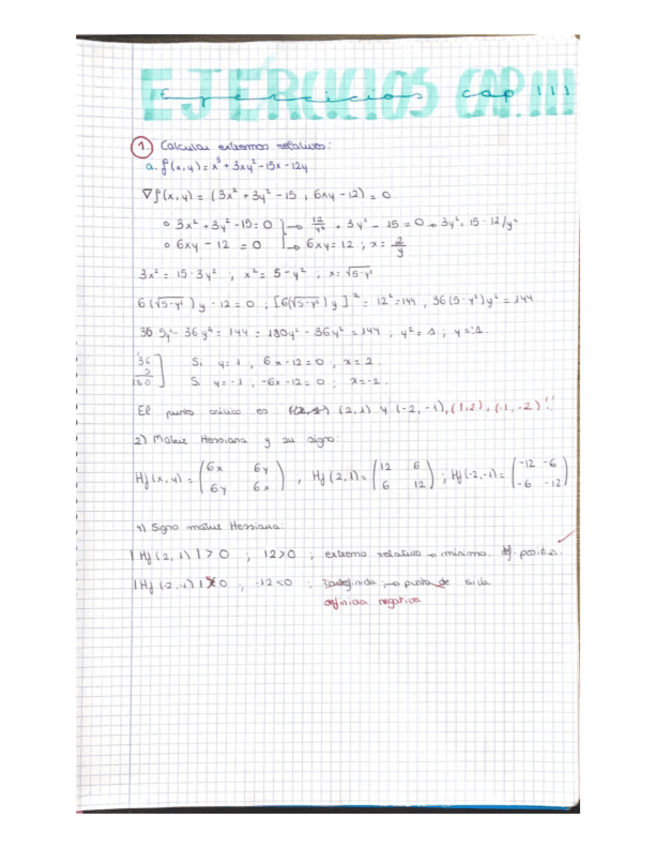 EJERCICIOS CAP.III
Ejercicios cap III
1. Calcular extremos relativos:
a. f(x,y) = x³ + 3xy² - 15x - 12y
∇f(x,y) = (3x² + 3y² - 15 , 6xy - 12) = 0
∘ 3x² + 3y² - 15 = 0 } → 12/y² + 3y² - 15 = 0 → 3y² = 15 - 12/y²
∘ 6xy - 12 = 0 → 6xy = 12 ; x = 2/y
3x² = 15 - 3y² ; x² = 5 - y² ; x = √5-y²
6(√5-y²) y - 12 = 0 ; [6(√5-y²) y]² = 12² = 144 , 36(5-y²)y² = 144
36·5y² - 36y⁴ = 144 = 180y² - 36y² = 144 , y² = 1 ; y = ±1.
36
5
180
Si y = 1 , 6x - 12 = 0 , x = 2.
Si y = -1 , -6x - 12 = 0 ; x = -2.
El punto crítico es (2,1) y (-2,-1), (1,2), (-1,-2)!!
2) Matriz Hessiana y su signo:
Hf(x,y) = (6x 6y
6y 6x) , Hf(2,1) = (12 6
6 12) ; Hf(-2,-1) = (-12 -6
-6 -12)
4) Signo matriz Hessiana.
|Hf(2,1)| > 0 ; 12 > 0 ; extremo relativo → mínimo. def. positiva.
|Hf(-2,-1)| > 0 ; -12 < 0 ; Indefinida → punto de silla
definida negativa